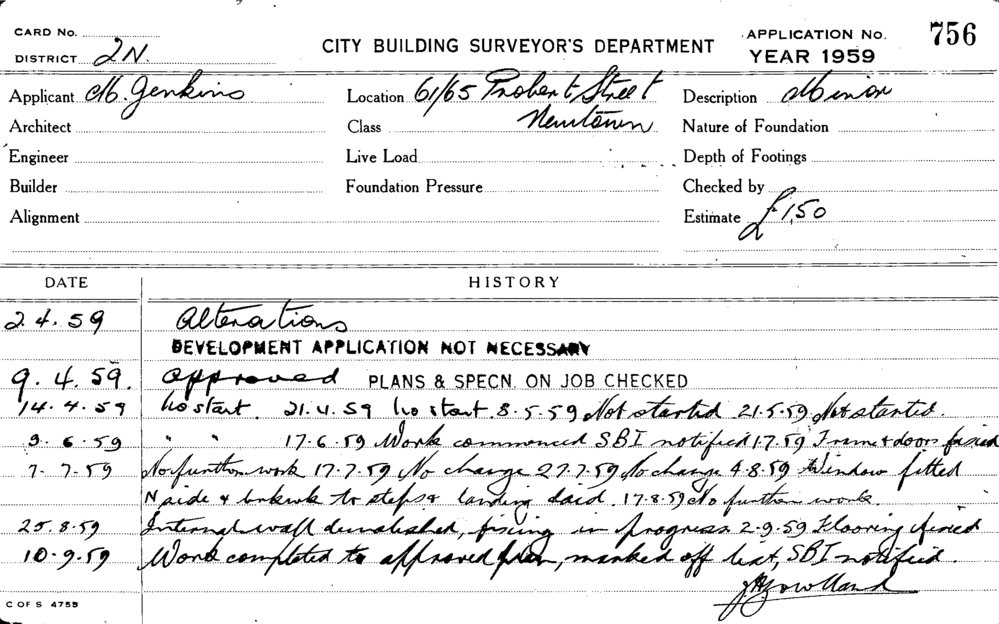 CARD No. CITY BUILDING SURVEYOR'S DEPARTMENT APPLICATION No. 756
DISTRICT 2N. YEAR 1959
Applicant M. Jenkins Location 61/65 Probert Street Description Minor
Architect Class Newtown Nature of Foundation
Engineer Live Load Depth of Footings
Builder Foundation Pressure Checked by
Alignment Estimate £150
DATE HISTORY
2.4.59 Alterations
DEVELOPMENT APPLICATION NOT NECESSARY
9.4.59. Approved PLANS & SPECN. ON JOB CHECKED
14.4.59 No start. 21.4.59 No start. 8.5.59 Not started 21.5.59 Not started.
3.6.59 " " 17.6.59 Work commenced SBI notified 1.7.59 Frame & doors fixed
7.7.59 No further work 17.7.59 No change 27.7.59 No change 4.8.59 Window fitted
N side & brkwk to steps & landing laid. 17.8.59 No further work.
25.8.59 Internal wall demolished, fixing in progress 2.9.59 Flooring fixed
10.9.59 Work completed to approved plan, marked off list, SBI notified.
C OF S 4755